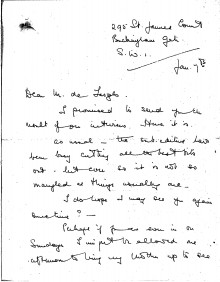 295 St. James Court
Buckingham Gate
S.W.1.
Jan. 9th
Dear M. de
I promised to send you the
result of our interview. Here it is.
as usual – the sub-editors have
been busy cutting all the best bits
out – but even so it is not so
mangled as things usually are –
I do hope I may see you again
sometime? –
Perhaps if you are ever in on
Sundays I might be allowed one
afternoon to bring my Mother up to see